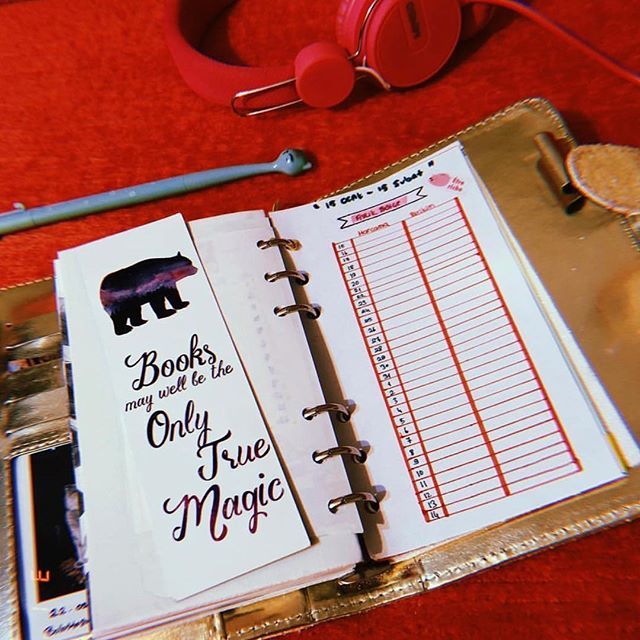 Books
may well be the
Only
True
Magic
" 15 OCAK ~ 15 Şubat "
Harcama Birikim
15
16
17
18
19
20
21
22
23
24
25
26
27
28
29
30
31
1
2
3
4
5
6
7
8
9
10
11
12
13
14